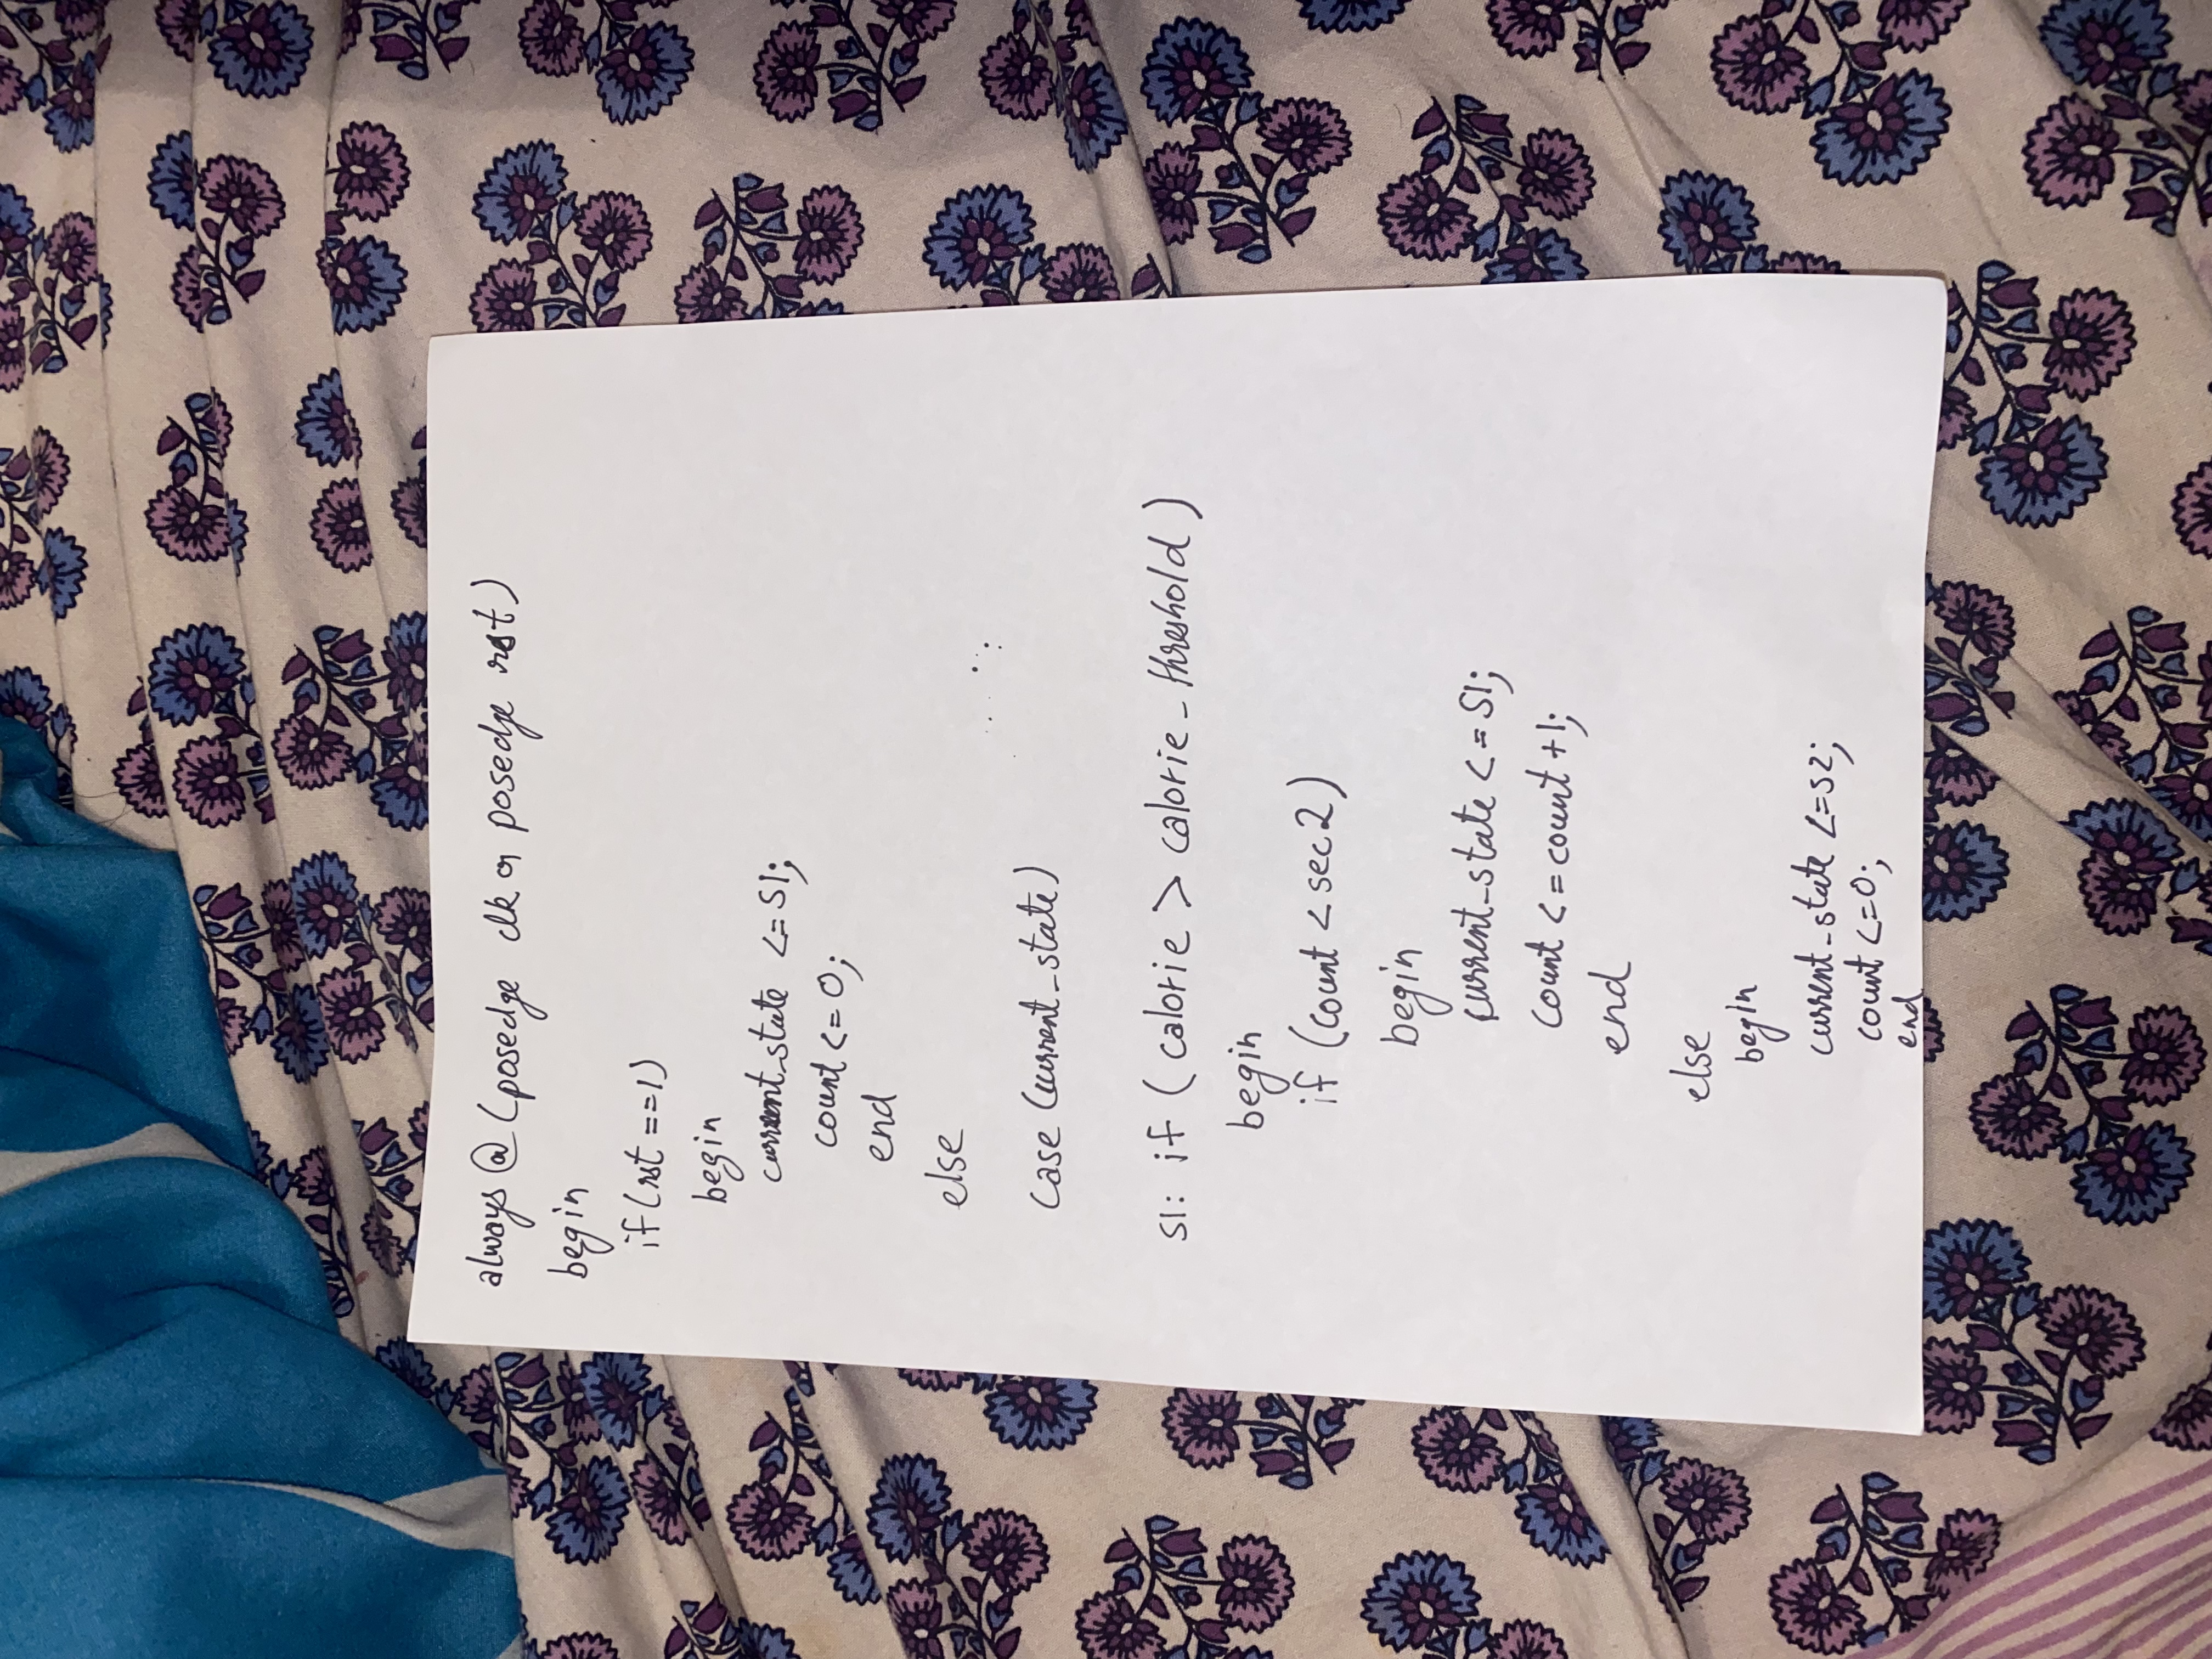 always @ (posedge clk or posedge rst)
begin
if (rst ==1)
begin
current_state <= S1;
count <= 0;
end
else
case (current_state)
S1: if ( calorie > calorie_threshold )
begin
if (count < sec2)
begin
current_state <= S1;
count <= count +1;
end
else
begin
current_state <= S2;
count <= 0;
end